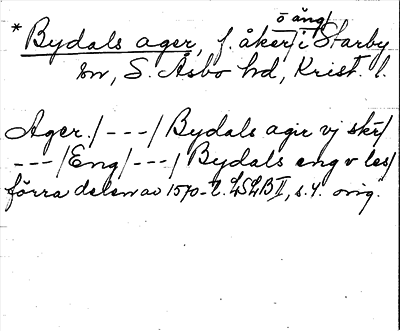 ö äng/
* Bydals ager, f. åker/ i Starby
sn, S. Åsbo hd, Krist. l.
Ager. /---/ Bydals agir vj skr/
---/Eng/---/ Bydals eng v les/
förra delen av 1570-t. LSLB II, s. 4. orig.